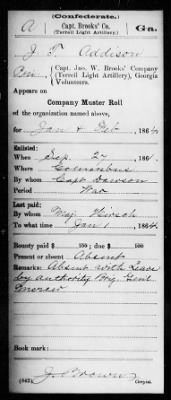 (Confederate.)
A Capt. Brooks' Co. (Terrell Light Artillery). Ga.
J. T. Addison
Capt. Jno. W. Brooks' Company
(Terrell Light Artillery), Georgia
Volunteers.
Appears on
Company Muster Roll
of the organization named above,
for Jan & Feb, 1864.
Enlisted:
When Sep. 27, 186
Where Columbus
By whom Capt Dawson
Period War
Last paid:
By whom Maj. Hirsch
To what time Jan 1, 1864
Bounty paid $ 100; due $ 100
Present or absent Absent
Remarks: Absent with leave
by authority Brig. Genl
Book mark:
(642) Copyist.